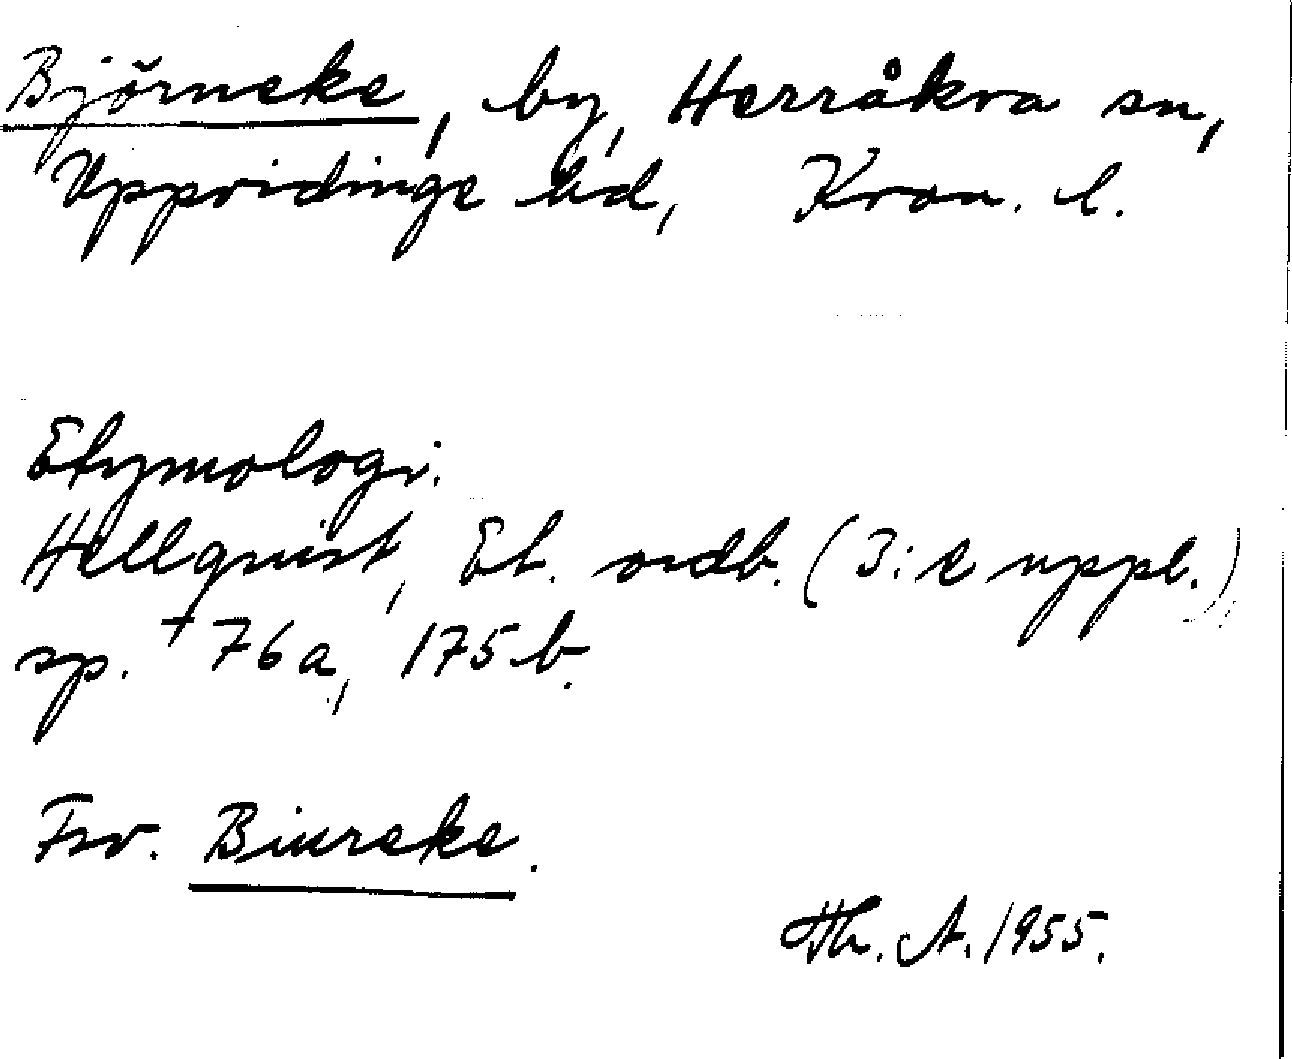 Björneke, by, Herråkra sn,
Uppvidinge hd, Kron. l.
Etymologi.
Hellquist, Et. ordb. (3:e uppl.),
sp. † 76a, 175 b.
Fsv. Biureke.
Th. A. 1955.